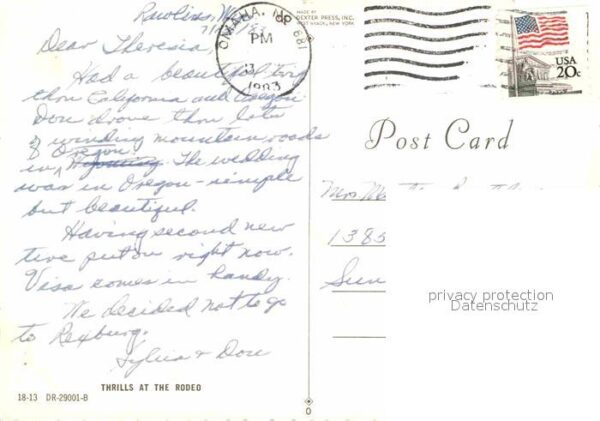 Rawlins, W
Dear Theresia,
Had a beautiful trip
thru California and Oregon
Don drove thru lots
of winding mountain roads
in Oregon. Wyoming The wedding
was in Oregon - simple
but beautiful.
Having second new
tire put on right now.
Visa comes in handy.
We decided not to go
to Rexburg.
Sylvia + Don
THRILLS AT THE RODEO
18-13 DR-29001-B
MADE BY
DEXTER PRESS, INC.
WEST NYACK, NEW YORK
OMAHA, NE 681
PM
1983
USA
20c
Post Card
Mrs
1385
Sun
privacy protection
Datenschutz